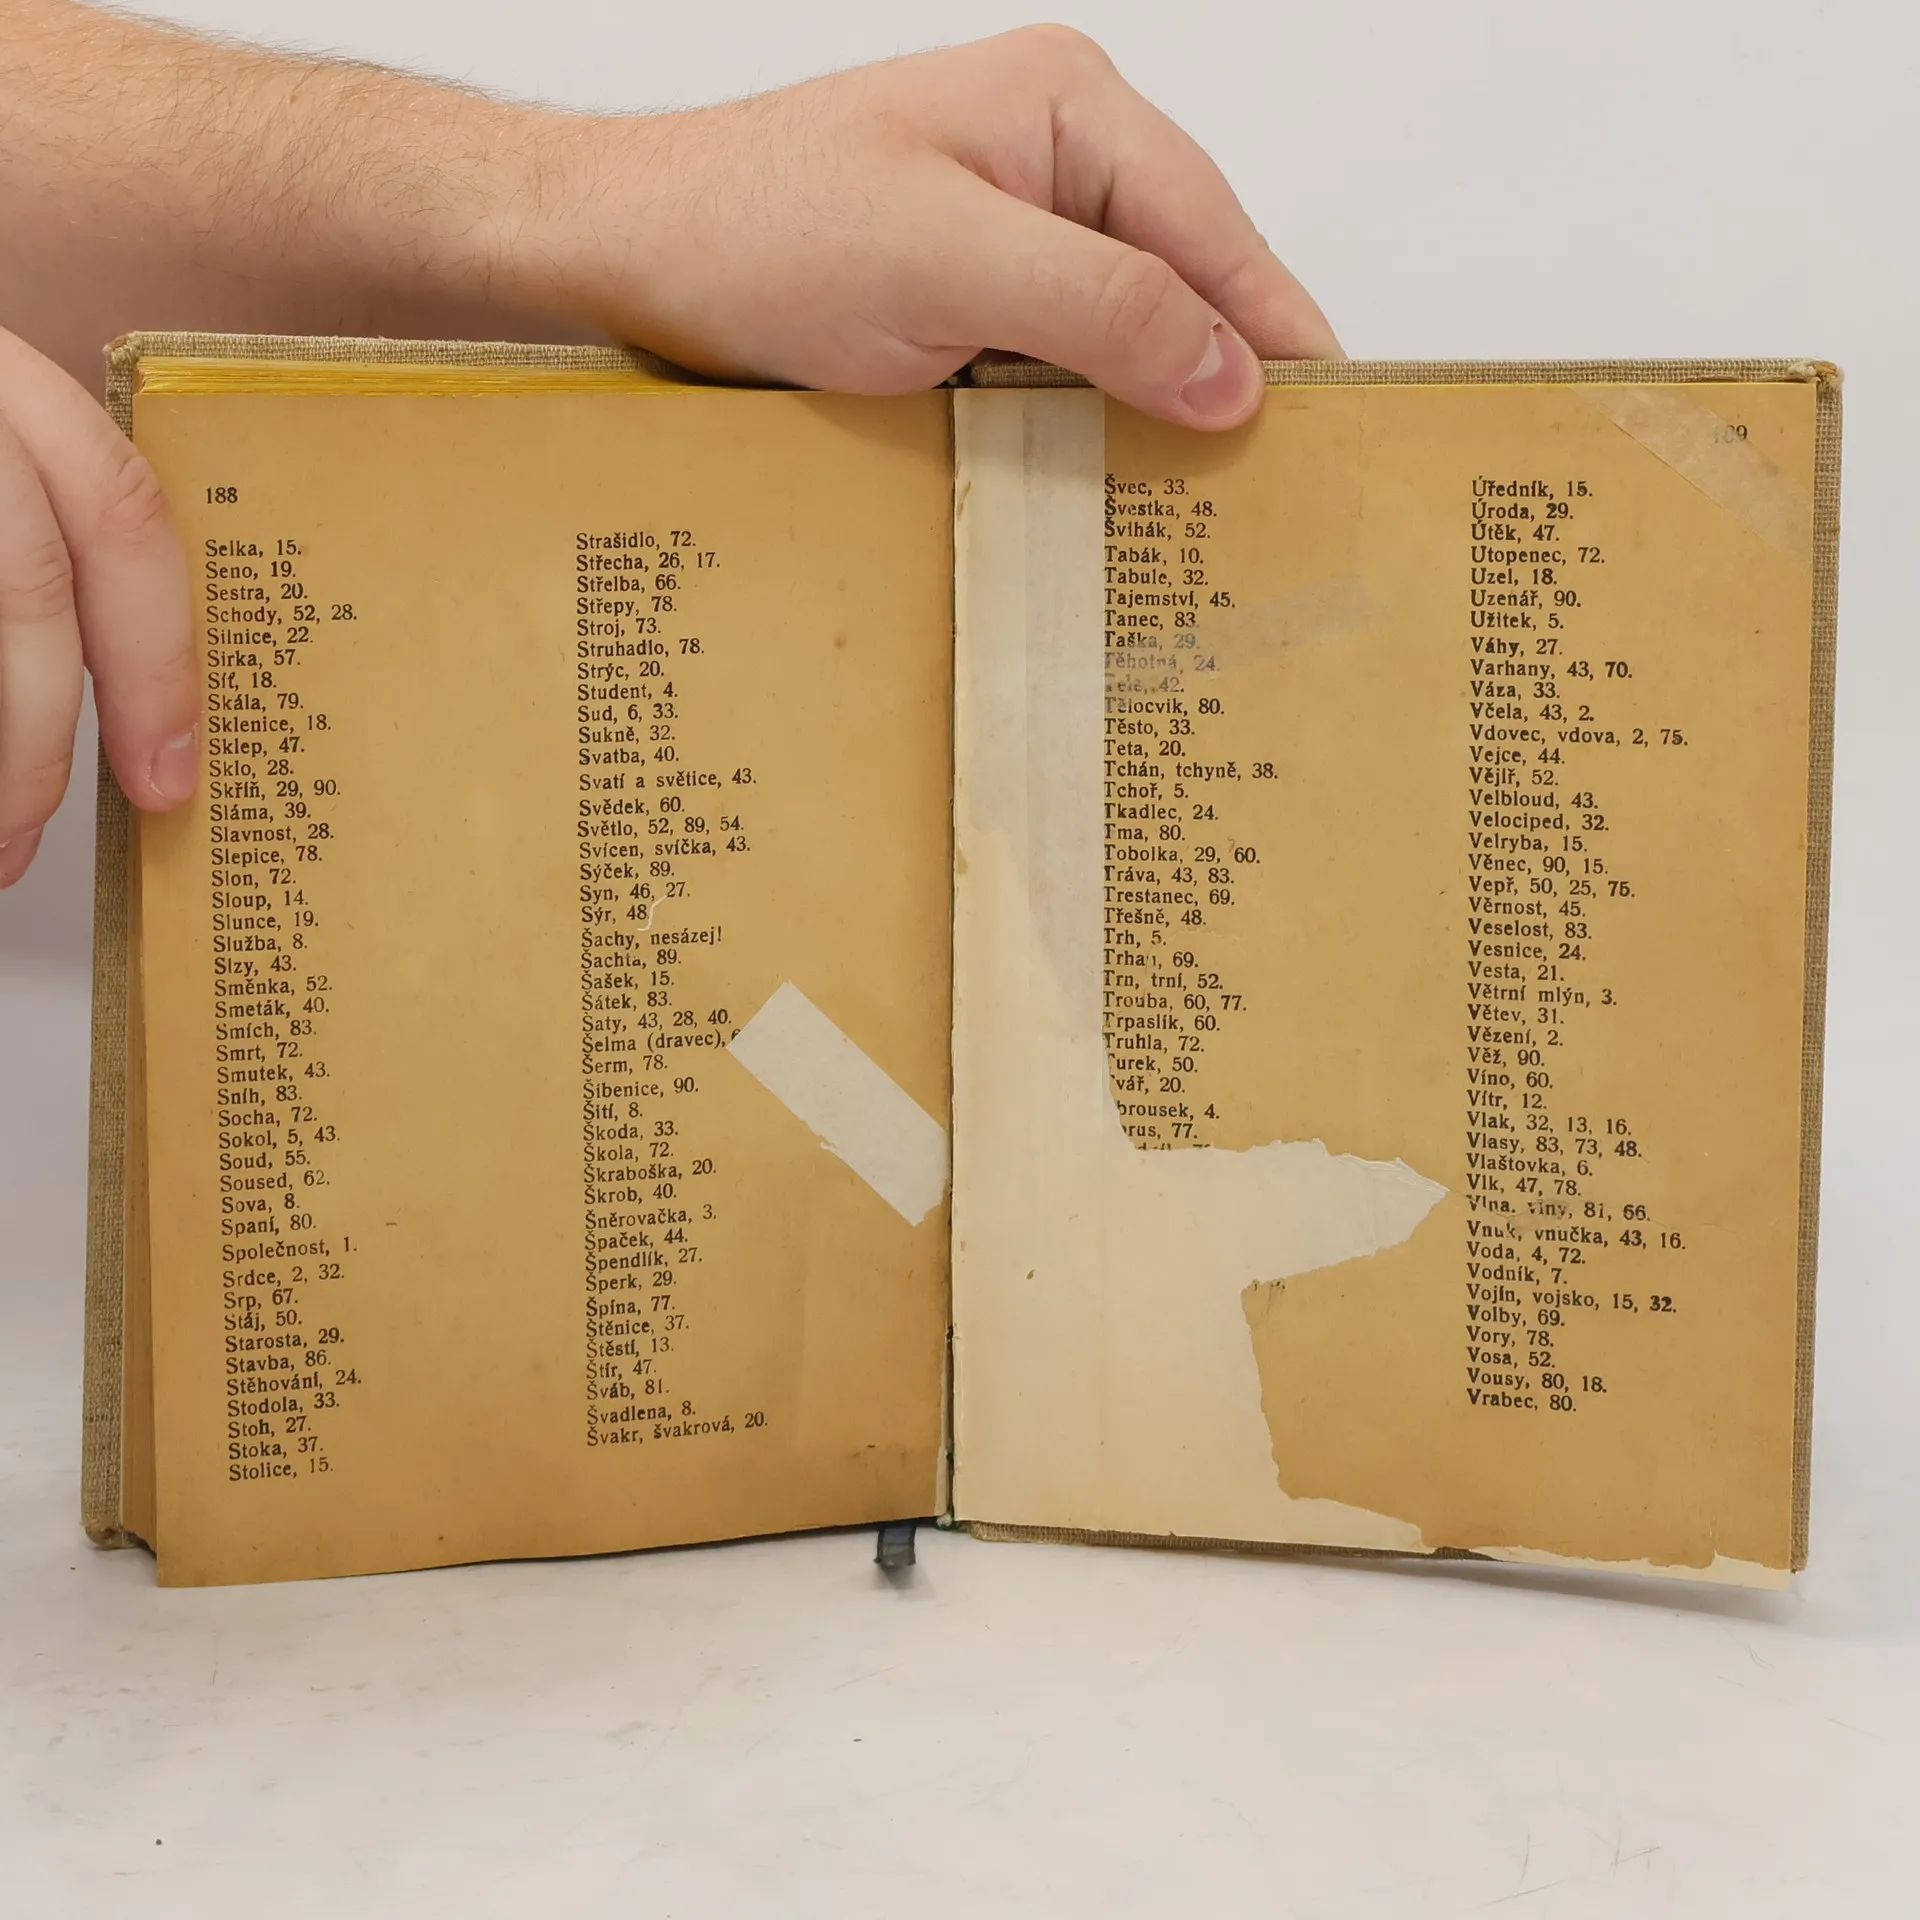 188
Selka, 15.
Seno, 19.
Sestra, 20.
Schody, 52, 28.
Silnice, 22.
Sirka, 57.
Síť, 18.
Skála, 79.
Sklenice, 18.
Sklep, 47.
Sklo, 28.
Skříň, 29, 90.
Sláma, 39.
Slavnost, 28.
Slepice, 78.
Slon, 72.
Sloup, 14.
Slunce, 19.
Služba, 8.
Slzy, 43.
Směnka, 52.
Smeták, 40.
Smích, 83.
Smrt, 72.
Smutek, 43.
Sníh, 83.
Socha, 72.
Sokol, 5, 43.
Soud, 55.
Soused, 62.
Sova, 8.
Spaní, 80.
Společnost, 1.
Srdce, 2, 32.
Srp, 67.
Stáj, 50.
Starosta, 29.
Stavba, 86.
Stěhování, 24.
Stodola, 33.
Stoh, 27.
Stoka, 37.
Stolice, 15.
Strašidlo, 72.
Střecha, 26, 17.
Střelba, 66.
Střepy, 78.
Stroj, 73.
Struhadlo, 78.
Strýc, 20.
Student, 4.
Sud, 6, 33.
Sukně, 32.
Svatba, 40.
Svatí a světice, 43.
Svědek, 60.
Světlo, 52, 89, 54.
Svícen, svíčka, 43.
Sýček, 89.
Syn, 46, 27.
Sýr, 48
Šachy, nesázej!
Šachta, 89.
Šašek, 15.
Šátek, 83.
Šaty, 43, 28, 40.
Šelma (dravec),
Šerm, 78.
Šibenice, 90.
Šití, 8.
Škoda, 33.
Škola, 72.
Škraboška, 20.
Škrob, 40.
Šněrovačka, 3.
Špaček, 44.
Špendlík, 27.
Šperk, 29.
Špína, 77.
Štěnice, 37.
Štěstí, 13.
Štír, 47.
Šváb, 81.
Švadlena, 8.
Švakr, švakrová, 20.
Švec, 33.
Švestka, 48.
Švihák, 52.
Tabák, 10.
Tabule, 32.
Tajemství, 45.
Tanec, 83.
Taška, 29.
Těhotná, 24.
Tele, 42.
Tělocvik, 80.
Těsto, 33.
Teta, 20.
Tchán, tchyně, 38.
Tchoř, 5.
Tkadlec, 24.
Tma, 80.
Tobolka, 29, 60.
Tráva, 43, 83.
Trestanec, 69.
Třešně, 48.
Trh, 5.
Trhan, 69.
Trn, trní, 52.
Trouba, 60, 77.
Trpaslík, 60.
Truhla, 72.
Turek, 50.
Tvář, 20.
brousek, 4.
rus, 77.
189
Úředník, 15.
Úroda, 29.
Útěk, 47.
Utopenec, 72.
Uzel, 18.
Uzenář, 90.
Užitek, 5.
Váhy, 27.
Varhany, 43, 70.
Váza, 33.
Včela, 43, 2.
Vdovec, vdova, 2, 75.
Vejce, 44.
Vějíř, 52.
Velbloud, 43.
Velociped, 32.
Velryba, 15.
Věnec, 90, 15.
Vepř, 50, 25, 75.
Věrnost, 45.
Veselost, 83.
Vesnice, 24.
Vesta, 21.
Větrní mlýn, 3.
Větev, 31.
Vězení, 2.
Věž, 90.
Víno, 60.
Vítr, 12.
Vlak, 32, 13, 16.
Vlasy, 83, 73, 48.
Vlaštovka, 6.
Vlk, 47, 78.
Vlna, vlny, 81, 66.
Vnuk, vnučka, 43, 16.
Voda, 4, 72.
Vodník, 7.
Vojín, vojsko, 15, 32.
Volby, 69.
Vory, 78.
Vosa, 52.
Vousy, 80, 18.
Vrabec, 80.